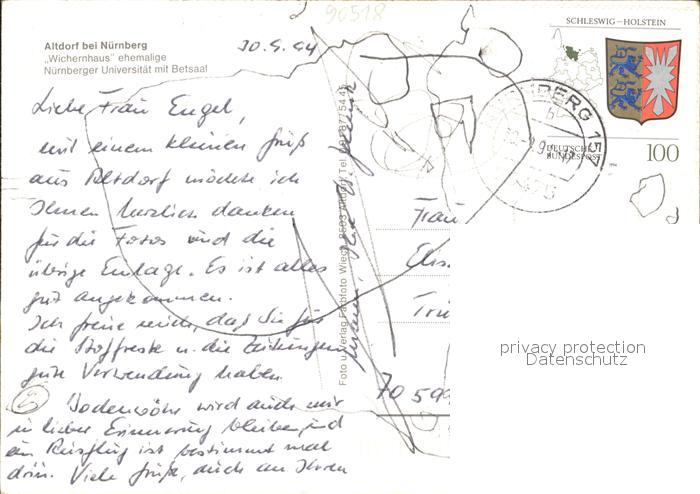 90518
SCHLESWIG-HOLSTEIN
Altdorf bei Nürnberg
„Wichernhaus" ehemalige
Nürnberger Universität mit Betsaal
30.9.94
DEUTSCHE
BUNDESPOST
100
BERG 15
Liebe Frau Engel,
mit einem kleinen Gruß
aus Altdorf möchte ich
Ihnen herzlich danken
für die Fotos und die
übrige Einlage. Es ist alles
gut angekommen.
Ich freue mich, daß Sie für
die Stoffreste u. die Zeitungen
gute Verwendung haben.
Bodenwöhr wird auch mir
in lieber Erinnerung bleiben und
ein Ausflug ist bestimmt mal
drin. Viele Grüße, auch an Ihren
Foto u. Verlag Farbfoto Wiech 8503 Altdorf Tel.
Frau
Elis
70 599
privacy protection
Datenschutz